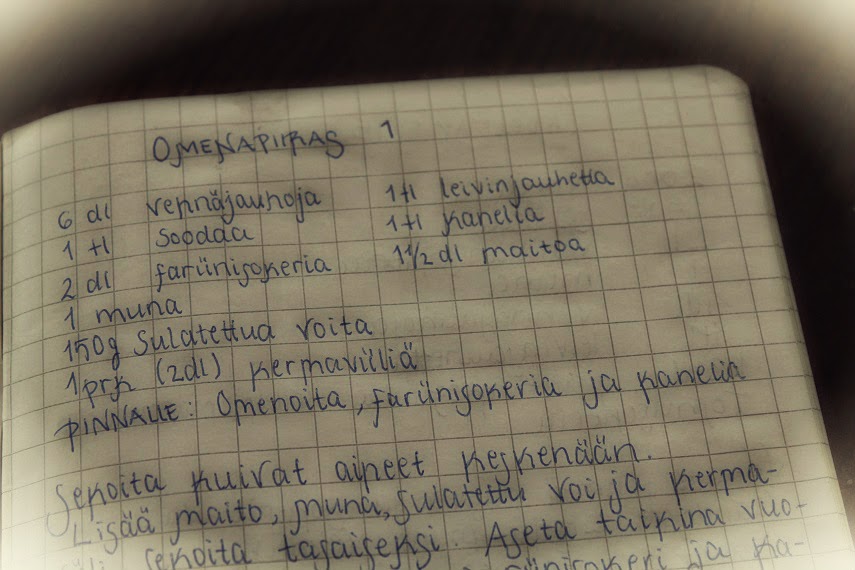 OMENAPIIRAS 1
6 dl vehnäjauhoja 1 tl leivinjauhetta
1 tl soodaa 1 tl kanelia
2 dl fariinisokeria 1 1/2 dl maitoa
1 muna
150g sulatettua voita
1 prk (2dl) kermaviiliä
PINNALLE: Omenoita, fariinisokeria ja kanelia
Sekoita kuivat aineet keskenään.
Lisää maito, muna, sulatettu voi ja kerma-
sekoita tasaiseksi. Aseta taikina vuo-
ja ka-